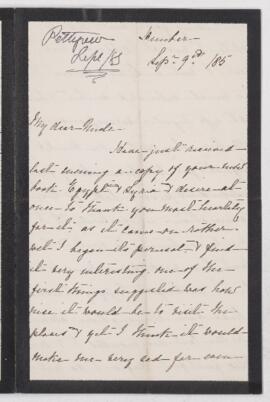 Pettigrew
Sept /85
Sept 9th /85
My dear Uncle
Have just received
last evening a copy of your
book Egypt & Syria & desire at
once to thank you most heartily
for it; as it came on rather
wet I began its perusal & find
it very interesting. one of the
first things suggested was how
nice it would be to visit the
places & yet I think it would
make me very sad for